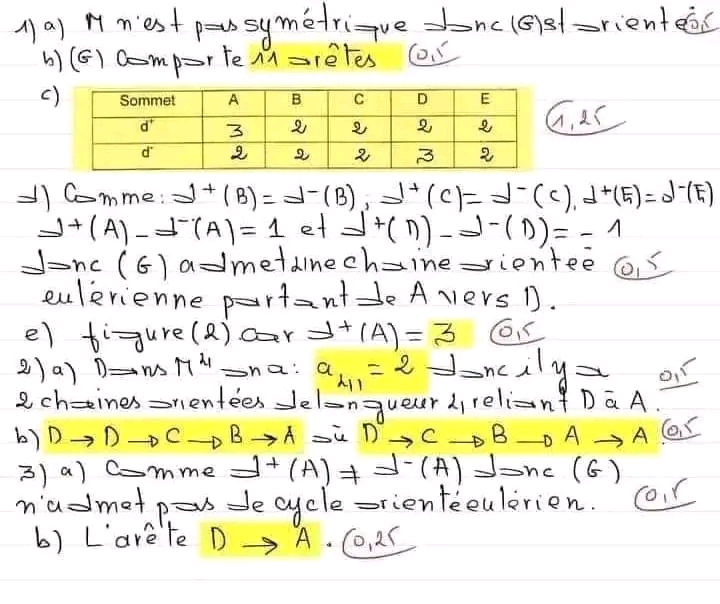 1) a) M n'est pas symétrique donc (G) est orienté 0,5
b) (G) comporte 11 arêtes 0,5
c) Sommet A B C D E 1,25
d⁺ 3 2 2 2 2
d⁻ 2 2 2 3 2
d) Comme : d⁺(B) = d⁻(B) ; d⁺(C) = d⁻(C), d⁺(E) = d⁻(E)
d⁺(A) - d⁻(A) = 1 et d⁺(D) - d⁻(D) = - 1
donc (G) admet une chaine orienteé 0,5
eulérienne partant de A vers D.
e) figure (2) car d⁺(A) = 3 0,5
2) a) Dans M⁴ on a : a₄₁ = 2 donc il y a 0,5
2 chaines orientées de longueur 4 reliant D à A.
b) D → D → C → B → A où D → C → B → A → A 0,5
3) a) Comme d⁺(A) ≠ d⁻(A) donc (G)
n'admet pas de cycle orienté eulérien. 0,5
b) L'arête D → A. 0,25